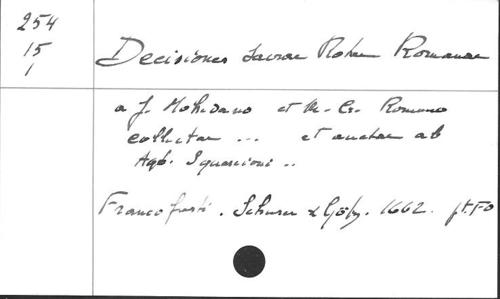 254
15
1
Decisiones Sacrae Rotae Romanae
a J. Mohedano et M. Cr. Romano
collectae ... et auctae ab
Agb. Squarcioni ..
Francofurti. Schurer & Götz. 1662. pt. Fo